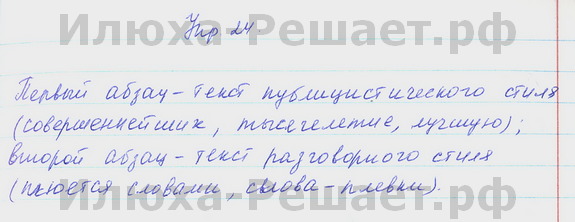 Илюха-Решает.рф
Упр 24.
Первый абзац - текст публицистического стиля
(совершеннейших, тысячелетие, лучшую);
второй абзац - текст разговорного стиля
(плюётся словами, слова - плевки).
Илюха-Решает.рф